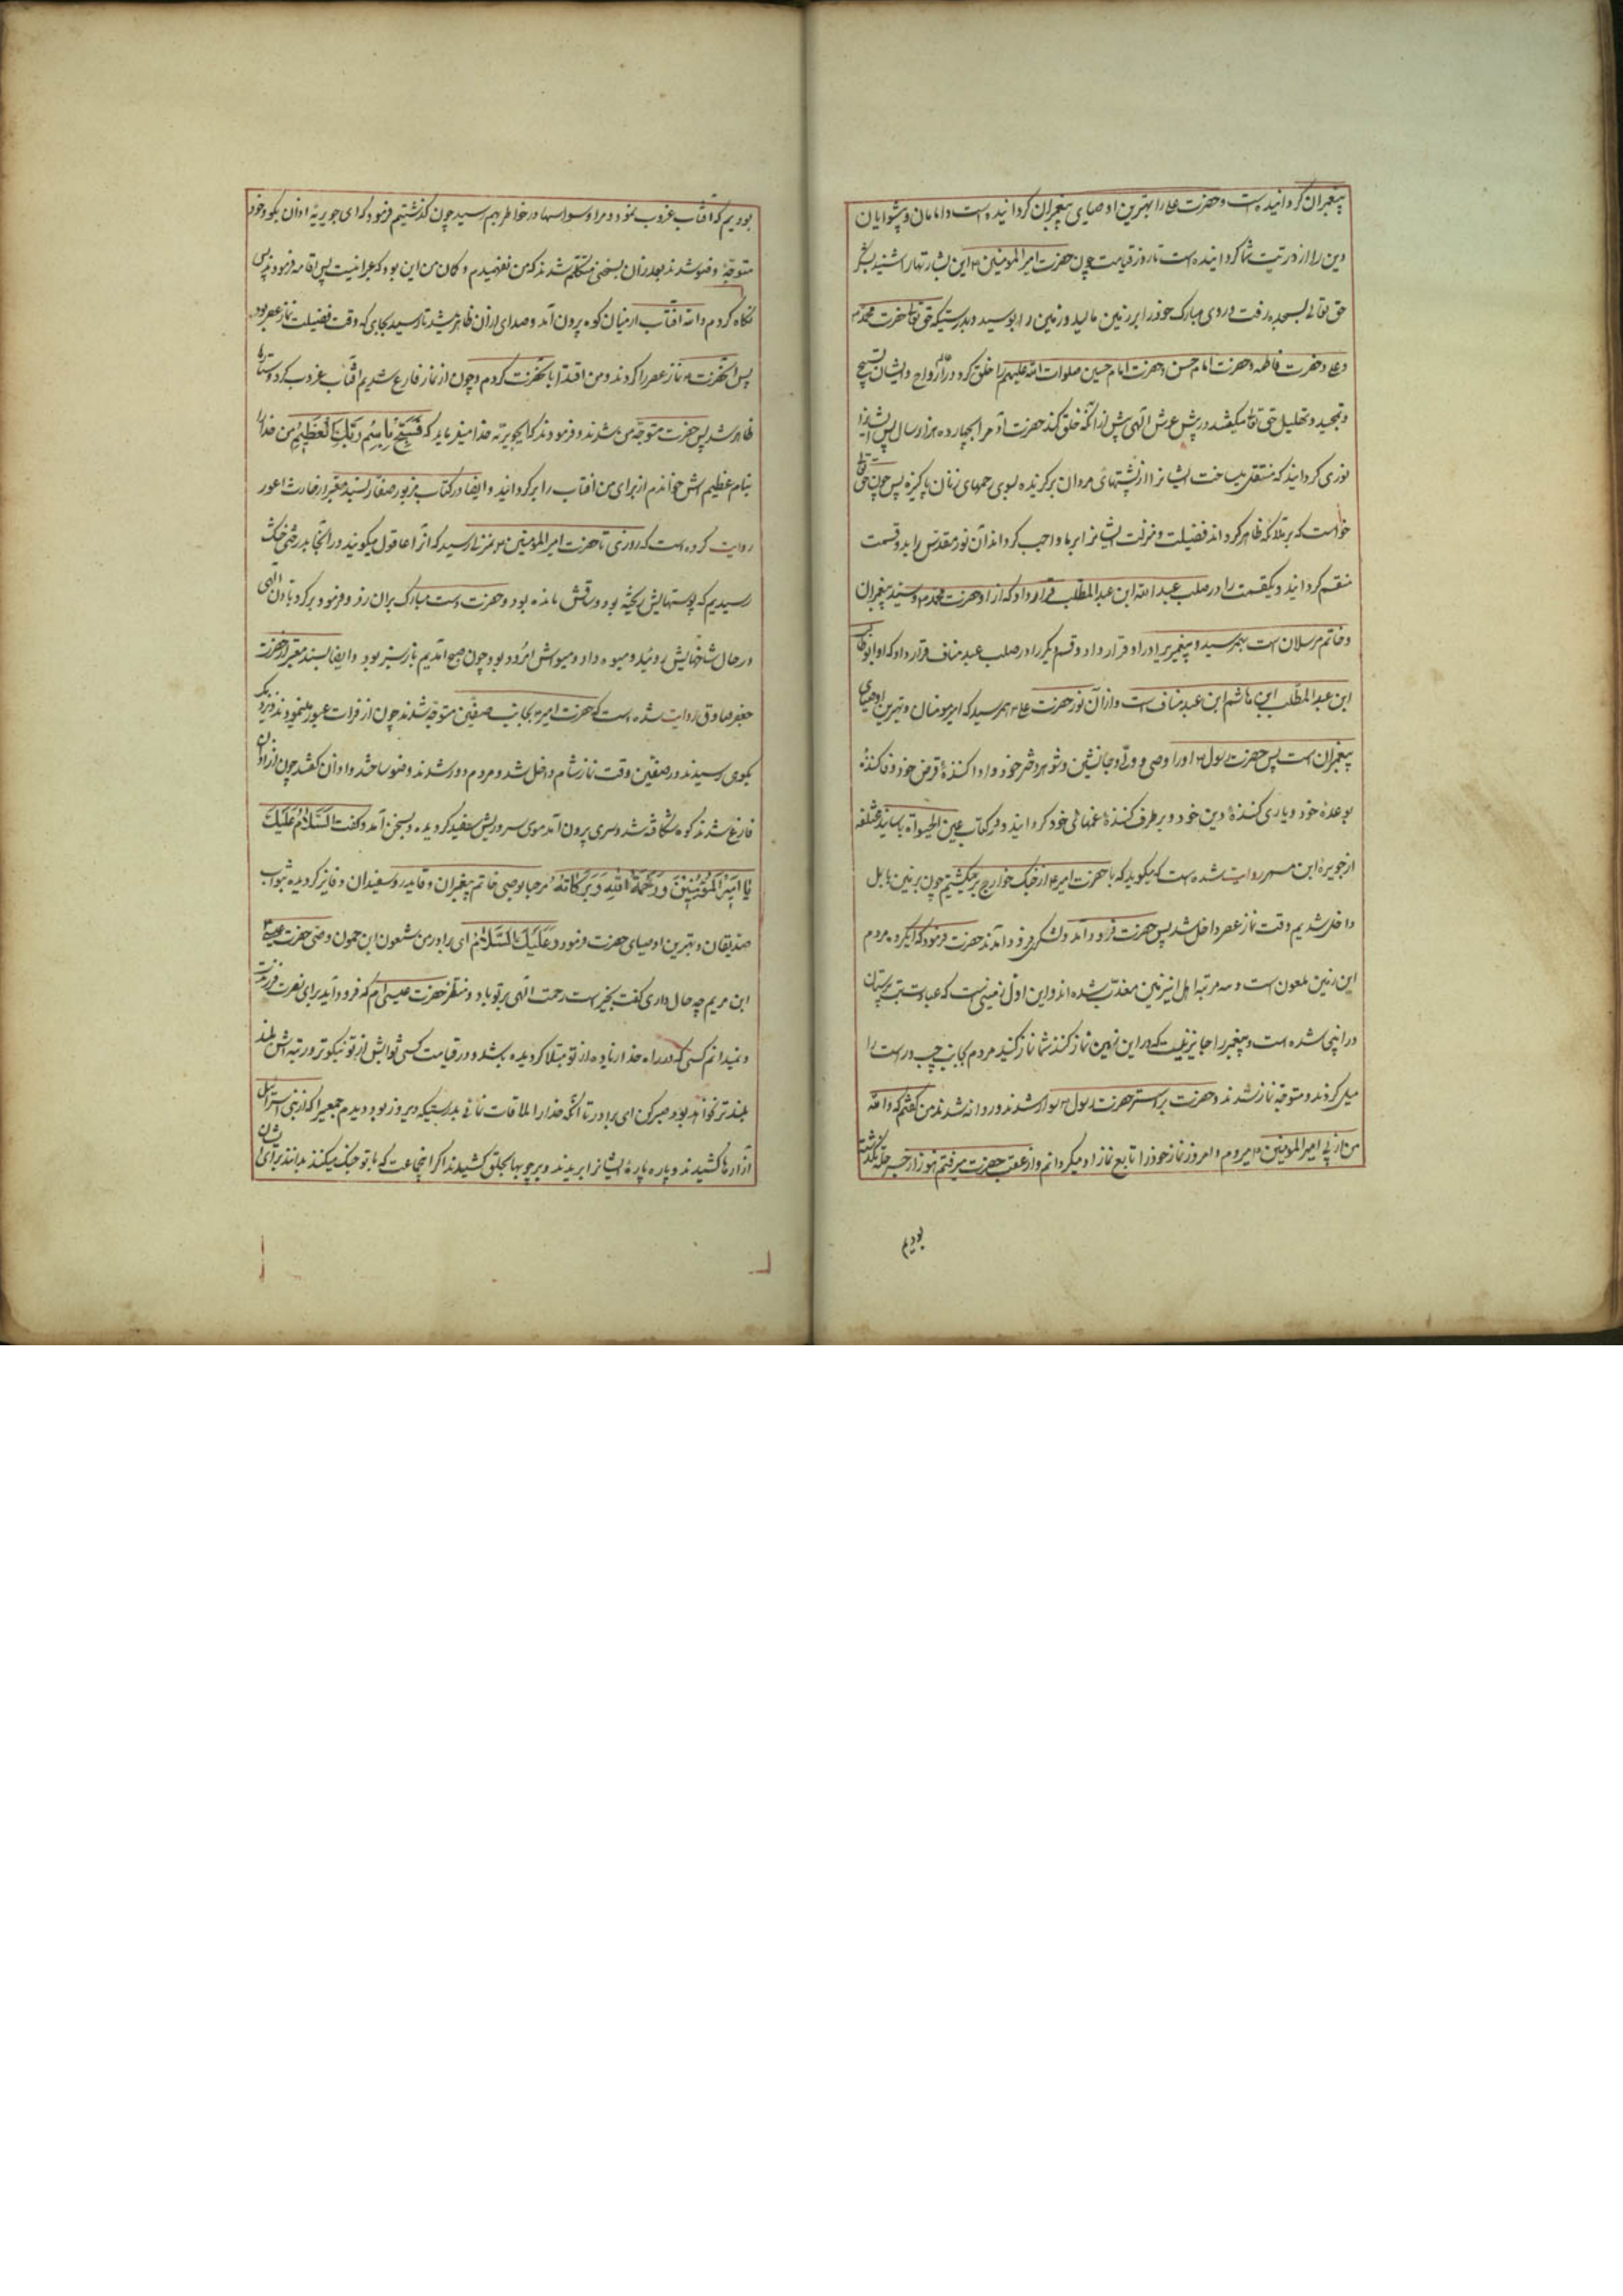 پیغمبران گردانیده است و حضرت علی را بهترین اوصیای پیغمبران گردانیده است و امامان و پیشوایان
دین را از ذریت شما گردانیده است تا روز قیامت چون حضرت امیرالمومنین ع این بشارتها را شنید بشکر
حق تعالی بسجده رفت و روی مبارک خود را بر زمین مالید و زمین را بوسید و بدرستیکه حق تعالی حضرت محمد ص
و علی و حضرت فاطمه و حضرت امام حسن و حضرت امام حسین صلوات الله علیهم را خلق کرد در عالم ارواح و ایشان تسبیح
و تمجید و تهلیل حق تعالی میکفتند در پیش عرش الهی پیش از آنکه خلق کند حضرت آدم را بچهارده هزار سال پس ایشانرا
نوری گردانید که منتقل میساخت ایشانرا از پشتهای مردان برگزیده بسوی رحمهای زنان پاکیزه پس چون حق تعالی
خواست که بر ملائکه ظاهر گرداند فضیلت و منزلت ایشانرا بر ما واجب گرداند آن نور مقدس را بدو قسمت
منقسم گردانید و یکقسمت را در صلب عبدالله ابن عبدالمطلب قرار داد که از او حضرت محمد ص سید پیغمبران
و خاتم مرسلان است بهم رسید و پیغمبری را در او قرار داد و قسم دیگر را در صلب عبد مناف قرار داد که او ابوطالب
ابن عبدالمطلب ابن هاشم ابن عبد مناف است و از آن نور حضرت علی ع بهم رسید که امیر مومنان و بهترین اوصیای
پیغمبران است پس حضرت رسول ص او را وصی و ولی و جانشین و شوهر دختر خود و ادا کنندهٔ قرض خود و وفا کنندهٔ
بوعدهٔ خود و یاری کنندهٔ دین خود و برطرف کنندهٔ غمهای خود گردانید و در کتاب عین الحیوة باسانید مختلفه
از جویرهٔ ابن مسهر روایت شده است که میکوید که با حضرت امیر ع از جنک خوارج برمیکشتیم چون بزمین بابل
داخل شدیم وقت نماز عصر داخل شد پس حضرت فرود آمد و لشکر فرود آمدند حضرت فرمود که ای گروه مردم
این زمین ملعون است و سه مرتبه اهل این زمین معذب شده اند و این اول زمینی است که عبادت بت پرستان
در اینجا شده است و پیغمبر را جایز نیست که در این زمین نماز کند شما نماز کنید مردم بجانب چپ و راست راه
میل کردند و متوجه نماز شدند و حضرت بر استر حضرت رسول ص سوار شدند و روانه شدند من گفتم که والله
من از پی امیرالمومنین ع میروم و امروز نماز خود را تابع نماز او میگردانم و از عقب حضرت میرفتم هنوز از جسر حله نگذشته
بودیم
بودیم که آفتاب غروب نمود و مرا وسواسها در خاطر بهم رسید چون گذشتیم فرمود که ای جویریه اذان بکو و خود
متوجهٔ وضو شدند بعد از آن بسخنی متکلم شدند که من نفهمیدم و کمان من این بود که عبرانیست پس اقامه فرمودند پس
نگاه کردم والله آفتاب از میان کوه بیرون آمد و صدای از آن ظاهر میشد تا رسید بجای که وقت فضیلت نماز عصر بود
پس آنحضرت ع نماز عصر را کردند و من اقتدا بآنحضرت کردم و چون از نماز فارغ شدیم آفتاب غروب کرد و ستارها
ظاهر شد پس حضرت متوجه من شدند و فرمودند که ایجویریه خدا میفرماید که فَسَبِّحْ بِاسْمِ رَبِّكَ الْعَظِيمِ من خدا را
بنام عظیم اش خواندم از برای من آفتاب را برگردانید و ایضا در کتاب مزبور صفار بسند معتبر از حارث اعور
روایت کرده است که روزی با حضرت امیرالمومنین ع بمنزلی رسید که آنرا عاقول میکویند در آنجا بدرختی خشک
رسیدیم که پوستهایش ریخته بود و ساقش مانده بود و حضرت دست مبارک بران زد و فرمود برگرد باذن الهی
در حال شاخهایش روئید و میوه داد و میوه‌اش امرود بود چون صبح آمدیم باز سبز بود و ایضا بسند معتبر از حضرت
جعفر صادق روایت شده است که حضرت امیر ع بجانب صفین متوجه شدند چون از فرات عبور نمودند نزدیک
بکوی رسیدند در صفین وقت نماز شام داخل شد و مردم دور شدند و وضو ساختند و اذان کفتند چون از اذان
فارغ شدند کوه شکافته شد و سری بیرون آمد موی سر و ریش سفید گردیده و بسخن آمد و کفت السَّلَامُ عَلَيْكَ
يَا أَمِيرَ الْمُؤْمِنِينَ وَرَحْمَةُ اللَّهِ وَبَرَكَاتُهُ مرحبا بوصی خاتم پیغمبران و قاید رو سفیدان و فایز گردیده بثواب
صدیقان و بهترین اوصیای حضرت فرمود وَعَلَيْكَ السَّلَامُ ای برادر من شمعون ابن حمون وصی حضرت عیسی
ابن مریم چه حال داری کفت بخیر است رحمت الهی بر تو باد و منتظر حضرت عیسی‌ام که فرود آید برای نصرت فرزندت
و نمیدانم کسی که در راه خدا زیاده از تو مبتلا گردیده باشد و در قیامت کسی ثوابش از تو نیکوتر و رتبه‌اش بلند
بلندتر نخواهد بود صبر کن ای برادر تا آنکه خدا را ملاقات نمائی بدرستیکه دیروز بود دیدم جمعی را که از بنی اسرائیل
آزارها کشیدند و پاره پاره ایشانرا بریدند و بر چوبها بحلق کشیدند اکر این جماعت که با تو جنک میکنند بدانند برای ایشان